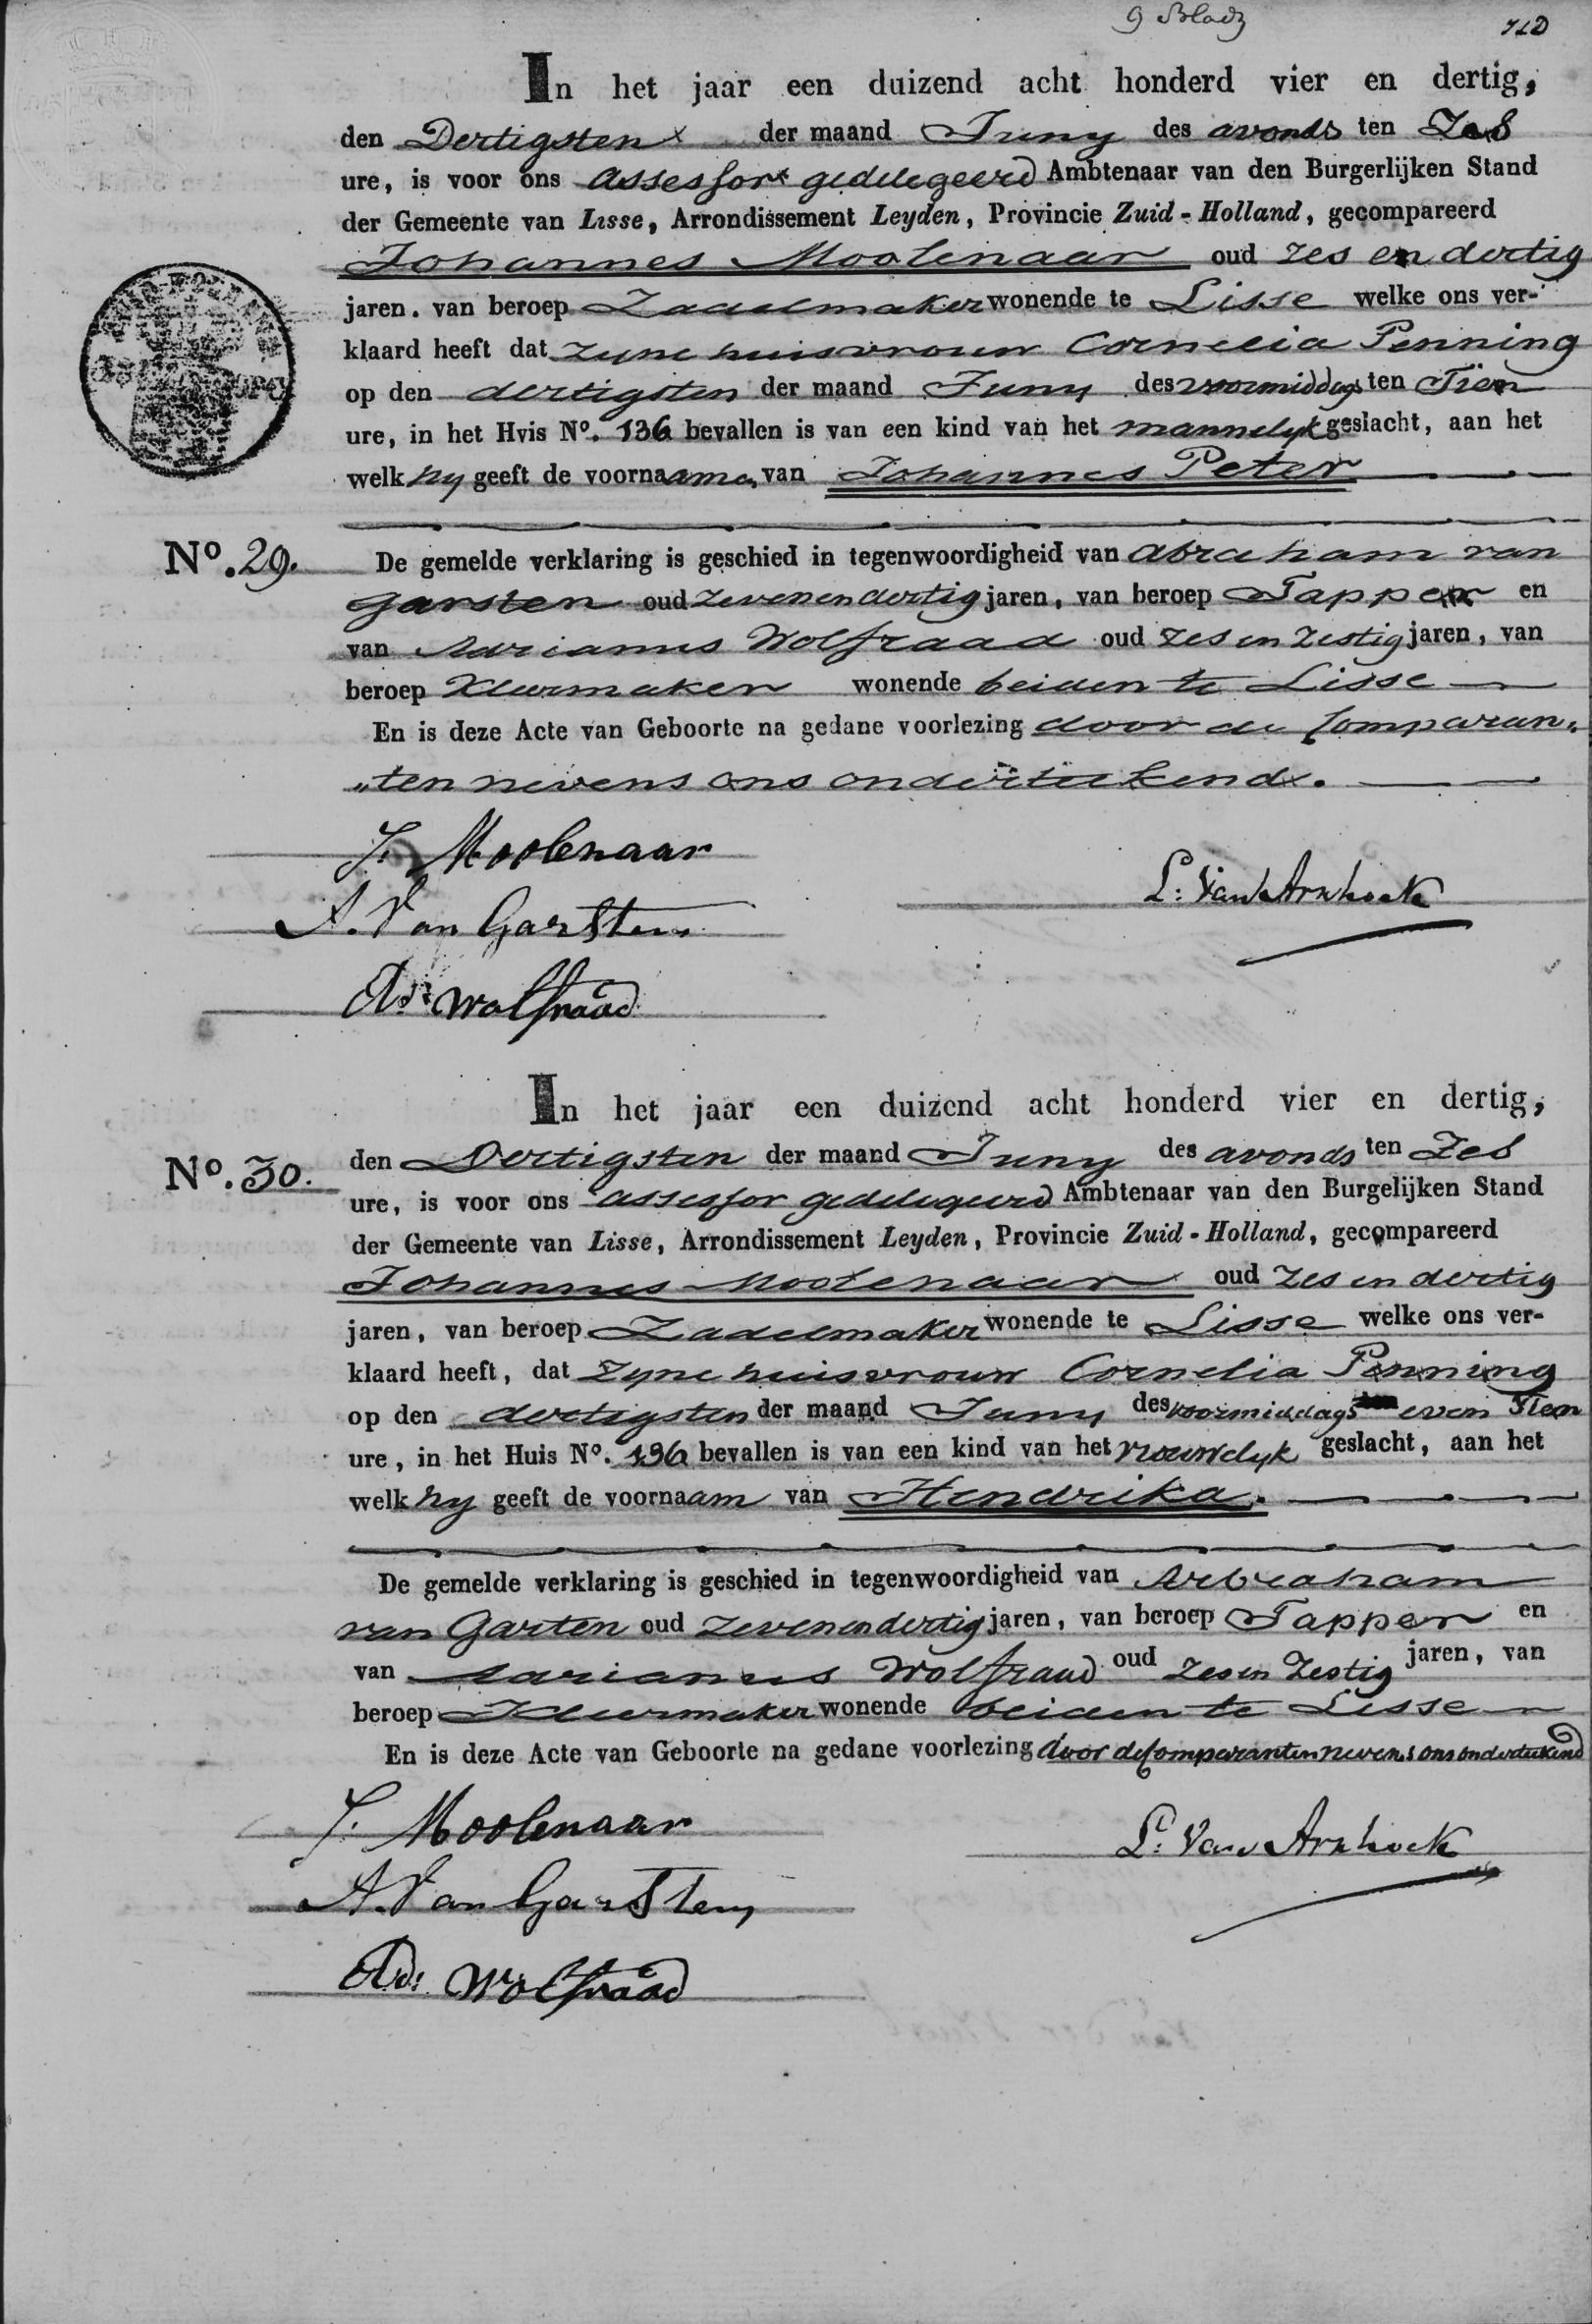 9 Bladz
In het jaar een duizend acht honderd vier en dertig,
den Dertigsten der maand Juny des avonds ten Zes
ure, is voor ons assessor gedelegeerd Ambtenaar van den Burgerlijken Stand
der Gemeente van Lisse, Arrondissement Leyden, Provincie Zuid-Holland, gecompareerd
Johannes Moolenaar oud zes en dertig
jaren. van beroep Zadelmaker wonende te Lisse welke ons ver-
klaard heeft dat zyne huisvrouw Cornelia Penning
op den dertigsten der maand Juny des voormiddags ten Tien
ure, in het Hvis No. 136 bevallen is van een kind van het mannelyk geslacht, aan het
welk hy geeft de voornaame van Johannes Peter
No. 29. De gemelde verklaring is geschied in tegenwoordigheid van Abraham van
Garsten oud zevenendertig jaren, van beroep Tapper en
van Adrianus Wolfraad oud zes en zestig jaren, van
beroep Kleermaker wonende beiden te Lisse
En is deze Acte van Geboorte na gedane voorlezing door de Comparan„
„ten nevens ons onderteekend.
J. Moolenaar
L: Van Arnhoek
A. Van Garsten
Ad: Wolfraad
In het jaar een duizend acht honderd vier en dertig,
No. 30. den Dertigsten der maand Juny des avonds ten Zes
ure, is voor ons assessor gedelegeerd Ambtenaar van den Burgelijken Stand
der Gemeente van Lisse, Arrondissement Leyden, Provincie Zuid-Holland, gecompareerd
Johannes Moolenaar oud zes en dertig
jaren, van beroep Zadelmaker wonende te Lisse welke ons ver-
klaard heeft, dat zyne huisvrouw Cornelia Penning
op den dertigsten der maand Juny des voormiddags even Tien
ure, in het Huis No. 136 bevallen is van een kind van het vrouwelyk geslacht, aan het
welk hy geeft de voornaam van Hendrika.
De gemelde verklaring is geschied in tegenwoordigheid van Arbraham
van Garten oud zevenendertig jaren, van beroep Tapper en
van Adrianus Wolfraad oud zes en zestig jaren, van
beroep Kleermaker wonende beiden te Lisse
En is deze Acte van Geboorte na gedane voorlezing door de Comparanten nevens ons onderteekend
J. Moolenaar
L: Van Arnhoek
A. Van Garsten
Ad: Wolfraad